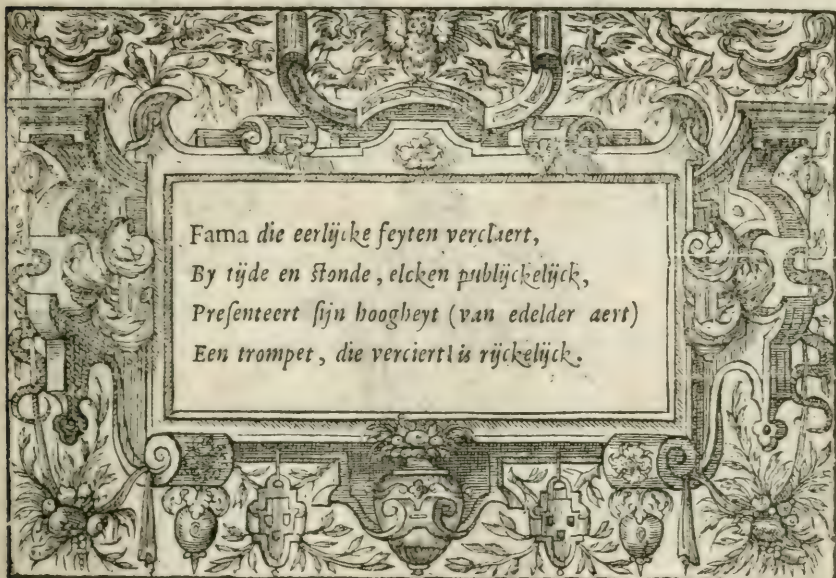 Fama die eerlijcke feyten verclaert,
By tijde en ſtonde, elcken publijckelijck,
Preſenteert ſijn hoogheyt (van edelder aert)
Een trompet, die verciert is rijckelijck.